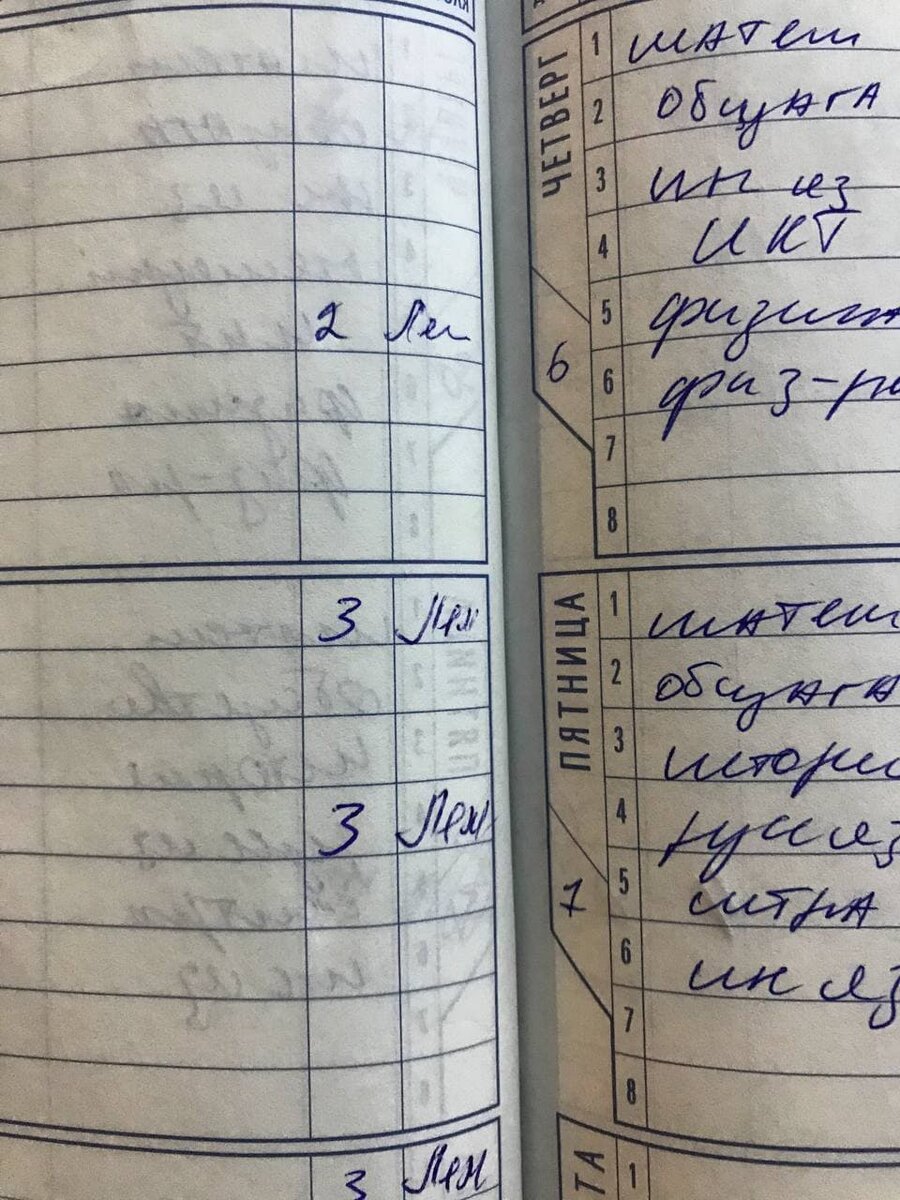 2 Лем
3 Лем
3 Лем
3 Лем
ЧЕТВЕРГ
6
1 матем
2 общага
3 ин яз
4 ИКТ
5 физика
6 физ-ра
7
8
ПЯТНИЦА
7
1 матем
2 общага
3 истори
4 рус яз
5 литра
6 ин яз
7
8
ТА
1